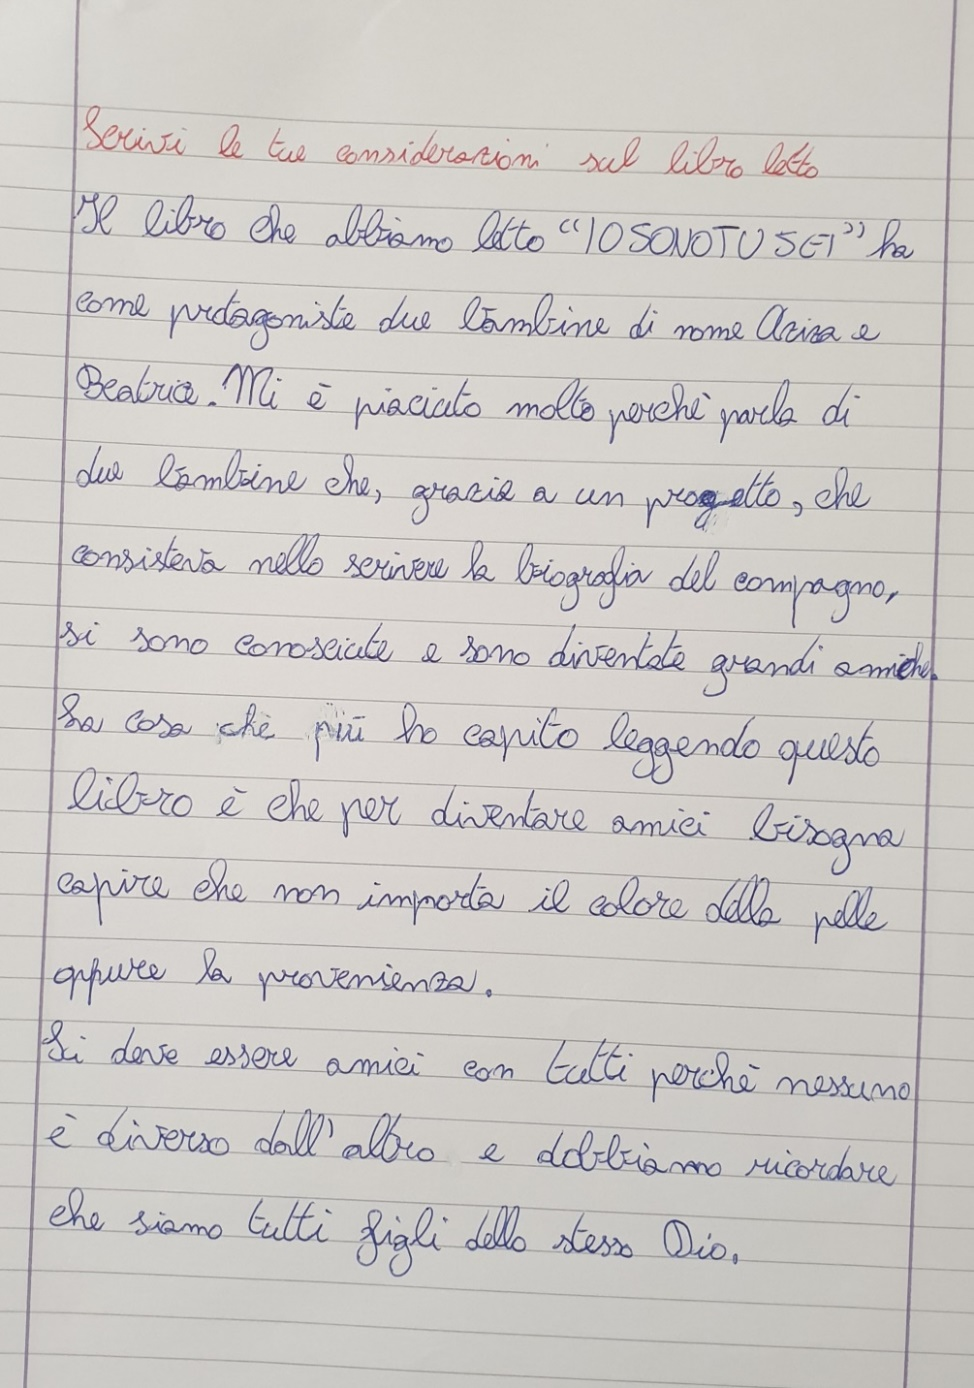 Scrivi le tue considerazioni sul libro letto
Il libro che abbiamo letto "IO SONO TU SEI" ha
come protagoniste due bambine di nome Aziza e
Beatrice. Mi è piaciuto molto perché parla di
due bambine che, grazie a un progetto, che
consisteva nello scrivere la biografia del compagno,
si sono conosciute e sono diventate grandi amiche.
La cosa che più ho capito leggendo questo
libro è che per diventare amici bisogna
capire che non importa il colore della pelle
oppure la provenienza.
Si deve essere amici con tutti perché nessuno
è diverso dall'altro e dobbiamo ricordare
che siamo tutti figli dello stesso Dio.